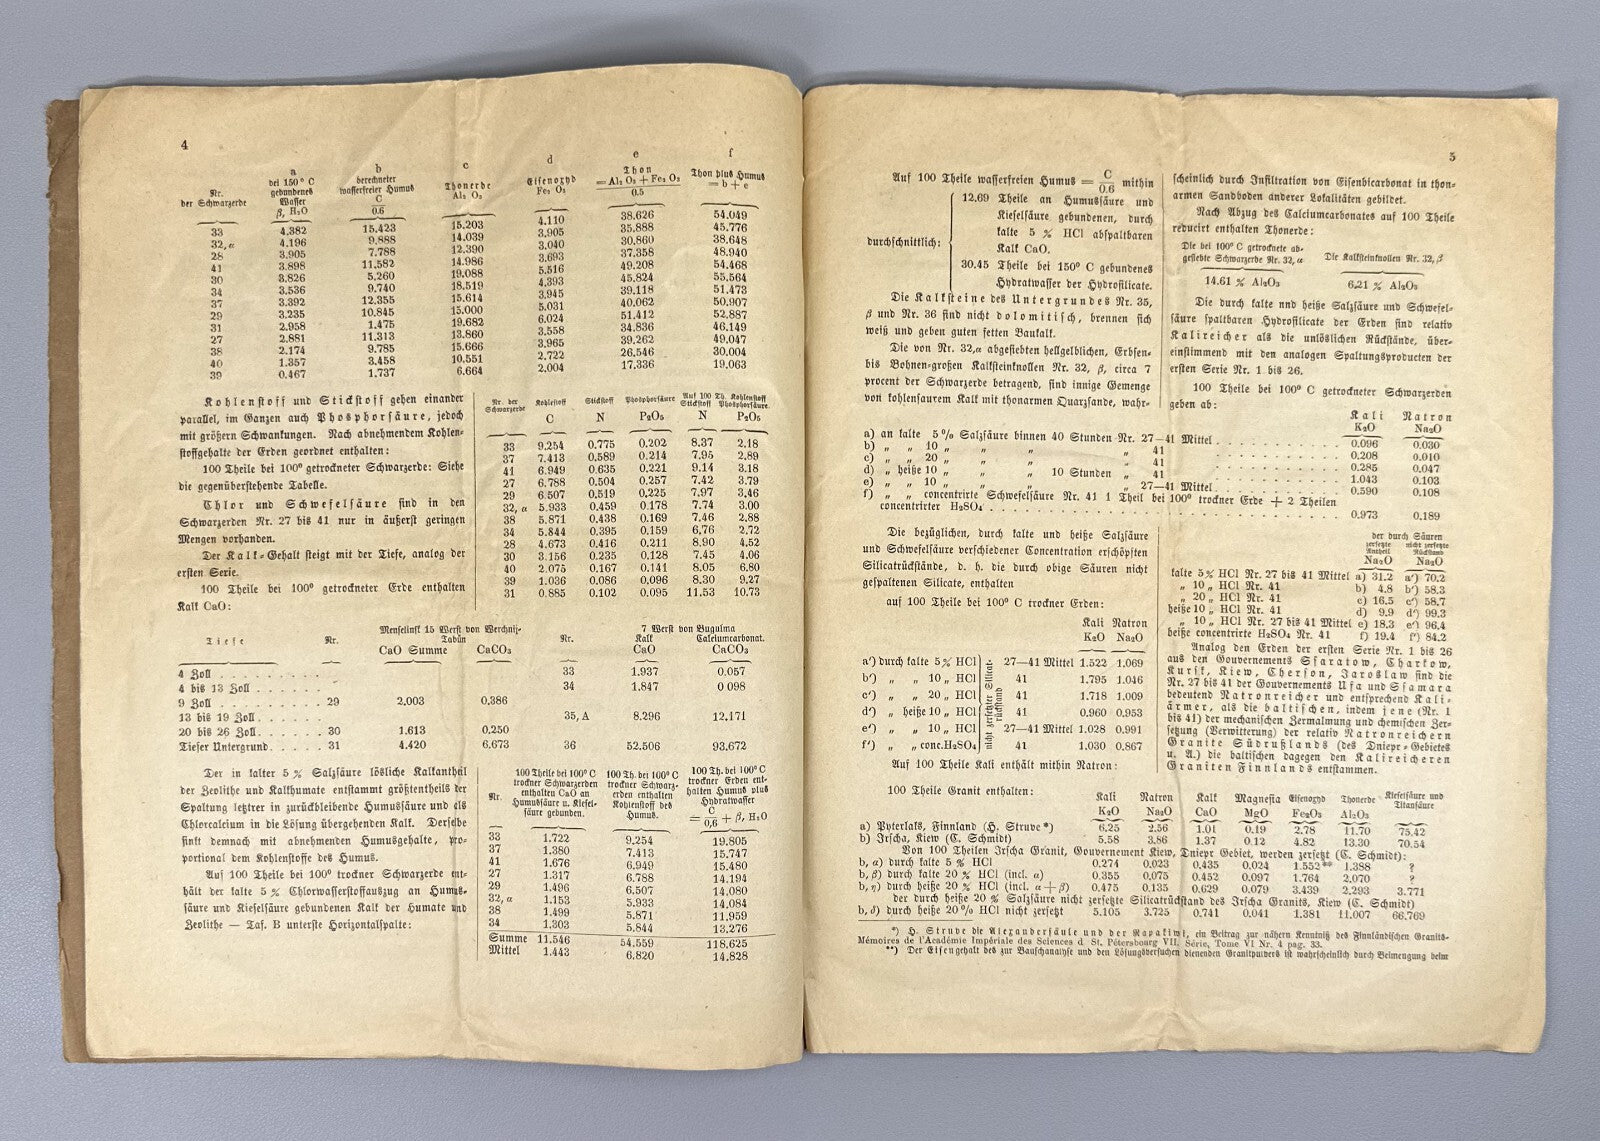 4
a b c d e f
Nr. der Schwarzerde
bei 150° C gebundenes Wasser β, H₂O
berechneter wasserfreier Humus C/0.6
Thonerde Al₂ O₃
Eisenoxyd Fe₂ O₃
Thon = Al₂ O₃ + Fe₂ O₃ / 0.5
Thon plus Humus = b + e
33 4.382 15.423 15.203 4.110 38.626 54.049
32,α 4.196 9.888 14.039 3.905 35.888 45.776
28 3.905 7.788 12.390 3.040 30.860 38.648
41 3.898 11.582 14.986 3.693 37.358 48.940
30 3.826 5.260 19.088 5.516 49.208 54.468
34 3.536 9.740 18.519 4.393 45.824 55.564
37 3.392 12.355 15.614 3.945 39.118 51.473
29 3.235 10.845 15.000 5.031 40.062 50.907
31 2.958 1.475 19.682 6.024 51.412 52.887
27 2.881 11.313 13.860 3.558 34.836 46.149
38 2.174 9.785 15.666 3.965 39.262 49.047
40 1.357 3.458 10.551 2.722 26.546 30.004
39 0.467 1.737 6.664 2.004 17.336 19.063
Kohlenstoff und Stickstoff gehen einander
parallel, im Ganzen auch Phosphorsäure, jedoch
mit größern Schwankungen. Nach abnehmendem Kohlen-
stoffgehalte der Erden geordnet enthalten:
100 Theile bei 100° getrockneter Schwarzerde: Siehe
die gegenüberstehende Tabelle.
Chlor und Schwefelsäure sind in den
Schwarzerden Nr. 27 bis 41 nur in äußerst geringen
Mengen vorhanden.
Der Kalk-Gehalt steigt mit der Tiefe, analog der
ersten Serie.
100 Theile bei 100° getrockneter Erde enthalten
Kalk CaO:
Nr. der Schwarzerde
Kohlenstoff C
Stickstoff N
Phosphorsäure P₂O₅
Auf 100 Th. Kohlenstoff
Stickstoff N Phosphorsäure P₂O₅
33 9.254 0.775 0.202 8.37 2.18
37 7.413 0.589 0.214 7.95 2.89
41 6.949 0.635 0.221 9.14 3.18
27 6.788 0.504 0.257 7.42 3.79
29 6.507 0.519 0.225 7.97 3.46
32, α 5.933 0.459 0.178 7.74 3.00
38 5.871 0.438 0.169 7.46 2.88
34 5.844 0.395 0.159 6,76 2.72
28 4.673 0.416 0.211 8.90 4.52
30 3.156 0.235 0.128 7.45 4.06
40 2.075 0.167 0.141 8.05 6.80
39 1.036 0.086 0.096 8.30 9.27
31 0.885 0.102 0.095 11.53 10.73
Menselinsk 15 Werst von Werchnij-Tabün
7 Werst von Bugulma
Tiefe Nr. CaO Summe CaCO₃ Nr. Kalk CaO Calciumcarbonat. CaCO₃
4 Zoll . . . . . . . . . 33 1.937 0.057
4 bis 13 Zoll . . . . . . 34 1.847 0 098
9 Zoll . . . . . . . . . 29 2.003 0.386
13 bis 19 Zoll . . . . . . 35, A 8.296 12.171
20 bis 26 Zoll . . . . . 30 1.613 0.250
Tiefer Untergrund . . . . . 31 4.420 6.673 36 52.506 93,672
Der in kalter 5 % Salzsäure lösliche Kalkantheil
der Zeolithe und Kalkhumate entstammt größtentheils der
Spaltung letztrer in zurückbleibende Humussäure und als
Chlorcalcium in die Lösung übergehenden Kalk. Derselbe
sinkt demnach mit abnehmenden Humusgehalte, pro-
portional dem Kohlenstoffe des Humus.
Auf 100 Theile bei 100° trockner Schwarzerde ent-
hält der kalte 5 % Chlorwasserstoffauszug an Humus-
säure und Kieselsäure gebundenen Kalk der Humate und
Zeolithe — Taf. B unterste Horizontalspalte:
Nr.
100 Theile bei 100° C trockner Schwarzerden enthalten CaO an Humussäure u. Kieselsäure gebunden.
100 Th. bei 100° C trockner Schwarzerden enthalten Kohlenstoff des Humus.
100 Th. bei 100° C trockner Erden enthalten Humus plus Hydratwasser = C/0,6 + β, H₂O
33 1.722 9.254 19.805
37 1.380 7.413 15.747
41 1.676 6.949 15.480
27 1.317 6.788 14.194
29 1.496 6.507 14.080
32,α 1.153 5.933 14.084
38 1.499 5.871 11.959
34 1.303 5.844 13.276
Summe 11.546 54.559 118.625
Mittel 1.443 6.820 14.828
5
Auf 100 Theile wasserfreien Humus = C/0.6 mithin
durchschnittlich:
12.69 Theile an Humussäure und
Kieselsäure gebundenen, durch
kalte 5 % HCl abspaltbaren
Kalk CaO.
30.45 Theile bei 150° C gebundenes
Hydratwasser der Hydrosilicate.
Die Kalksteine des Untergrundes Nr. 35,
β und Nr. 36 sind nicht dolomitisch, brennen sich
weiß und geben guten fetten Baukalk.
Die von Nr. 32,α abgesiebten hellgelblichen, Erbsen-
bis Bohnen-großen Kalksteinknollen Nr. 32, β, circa 7
procent der Schwarzerde betragend, sind innige Gemenge
von kohlensaurem Kalk mit thonarmen Quarzsande, wahr-
scheinlich durch Infiltration von Eisenbicarbonat in thon-
armen Sandboden anderer Lokalitäten gebildet.
Nach Abzug des Calciumcarbonates auf 100 Theile
reducirt enthalten Thonerde:
Die bei 100° C getrocknete abgesiebte Schwarzerde Nr. 32,α Die Kalksteinknollen Nr. 32,β
14.61 % Al₂O₃ 6,21 % Al₂O₃
Die durch kalte nnd heiße Salzsäure und Schwefel-
säure spaltbaren Hydrosilicate der Erden sind relativ
Kalireicher als die unlöslichen Rückstände, über-
einstimmend mit den analogen Spaltungsproducten der
ersten Serie Nr. 1 bis 26.
100 Theile bei 100° C getrockneter Schwarzerden
geben ab:
Kali K₂O Natron Na₂O
a) an kalte 5% Salzsäure binnen 40 Stunden Nr. 27—41 Mittel . . . 0.096 0.030
b) „ „ 10 „ „ „ „ 41 . . . 0.208 0.010
c) „ „ 20 „ „ „ „ 41 . . . 0.285 0.047
d) „ heiße 10 „ „ „ 10 Stunden „ 41 . . . 1.043 0.103
e) „ „ 10 „ „ „ „ 27—41 Mittel . . . 0.590 0.108
f) „ „ concentrirte Schwefelsäure Nr. 41 1 Theil bei 100° trockner Erde + 2 Theilen
concentrirter H₂SO₄ . . . 0.973 0.189
Die bezüglichen, durch kalte und heiße Salzsäure
und Schwefelsäure verschiedener Concentration erschöpften
Silicatrückstände, d. h. die durch obige Säuren nicht
gespaltenen Silicate, enthalten
auf 100 Theile bei 100° C trockner Erden:
Kali K₂O Natron Na₂O
a′) durch kalte 5% HCl 27—41 Mittel 1.522 1.069
b′) „ „ 10 „ HCl 41 1.795 1.046
c′) „ „ 20 „ HCl 41 1.718 1.009
d′) „ heiße 10 „ HCl 41 0.960 0.953
e′) „ „ 10 „ HCl 27—41 Mittel 1.028 0.991
f′) „ „ conc.H₂SO₄ 41 1.030 0.867
nicht zersetzter Silicatrückstand
Auf 100 Theile Kali enthält mithin Natron:
der durch Säuren
zersetzte Antheil Na₂O nicht zersetzte Rückstand Na₂O
kalte 5% HCl Nr. 27 bis 41 Mittel a) 31.2 a′) 70.2
„ 10 „ HCl Nr. 41 b) 4.8 b′) 58.3
„ 20 „ HCl Nr. 41 c) 16.5 c′) 58.7
heiße 10 „ HCl Nr. 41 d) 9.9 d′) 99.3
„ 10 „ HCl Nr. 27 bis 41 Mittel e) 18.3 e′) 96.4
heiße concentrirte H₂SO₄ Nr. 41 f) 19.4 f′) 84.2
Analog den Erden der ersten Serie Nr. 1 bis 26
aus den Gouvernements Ssaratow, Charkow,
Kursk, Kiew, Cherson, Jaroslaw sind die
Nr. 27 bis 41 der Gouvernements Ufa und Ssamara
bedeutend Natronreicher und entsprechend Kali-
ärmer, als die baltischen, indem jene (Nr. 1
bis 41) der mechanischen Zermalmung und chemischen Zer-
setzung (Verwitterung) der relativ Natronreichern
Granite Südrußlands (des Dniepr-Gebietes
u. A.) die baltischen dagegen den Kalireicheren
Graniten Finnlands entstammen.
100 Theile Granit enthalten:
Kali K₂O Natron Na₂O Kalk CaO Magnesia MgO Eisenoxyd Fe₂O₃ Thonerde Al₂O₃ Kieselsäure und Titansäure
a) Pyterlaks, Finnland (H. Struve*) 6.25 2.56 1.01 0.19 2.78 11.70 75.42
b) Irscha, Kiew (C. Schmidt) 5.58 3.86 1.37 0.12 4.82 13.30 70.54
Von 100 Theilen Irscha Granit, Gouvernement Kiew, Dniepr Gebiet, werden zersetzt (C. Schmidt):
b, α) durch kalte 5 % HCl 0.274 0.023 0.435 0.024 1.552** 1.388 ?
b, β) durch kalte 20 % HCl (incl. α) 0.355 0.075 0.452 0.097 1.764 2,070 ?
b, η) durch heiße 20 % HCl (incl. α + β) 0.475 0.135 0.629 0.079 3.439 2,293 3.771
der durch heiße 20 % Salzsäure nicht zersetzte Silicatrückstand des Irscha Granits, Kiew (C. Schmidt)
b, δ) durch heiße 20% HCl nicht zersetzt 5.105 3.725 0.741 0.041 1.381 11.007 66.769
*) H. Struve die Alexandersäule und der Rapakiwi, ein Beitrag zur nähern Kenntniß des Finnländischen Granits-
Mémoires de l'Académie Impériale des Sciences d St. Pétersbourg VII, Série, Tome VI Nr. 4 pag. 33.
**) Der Eisengehalt des zur Bauschanalyse und den Lösungsversuchen dienenden Granitpulvers ist wahrscheinlich durch Beimengung beim